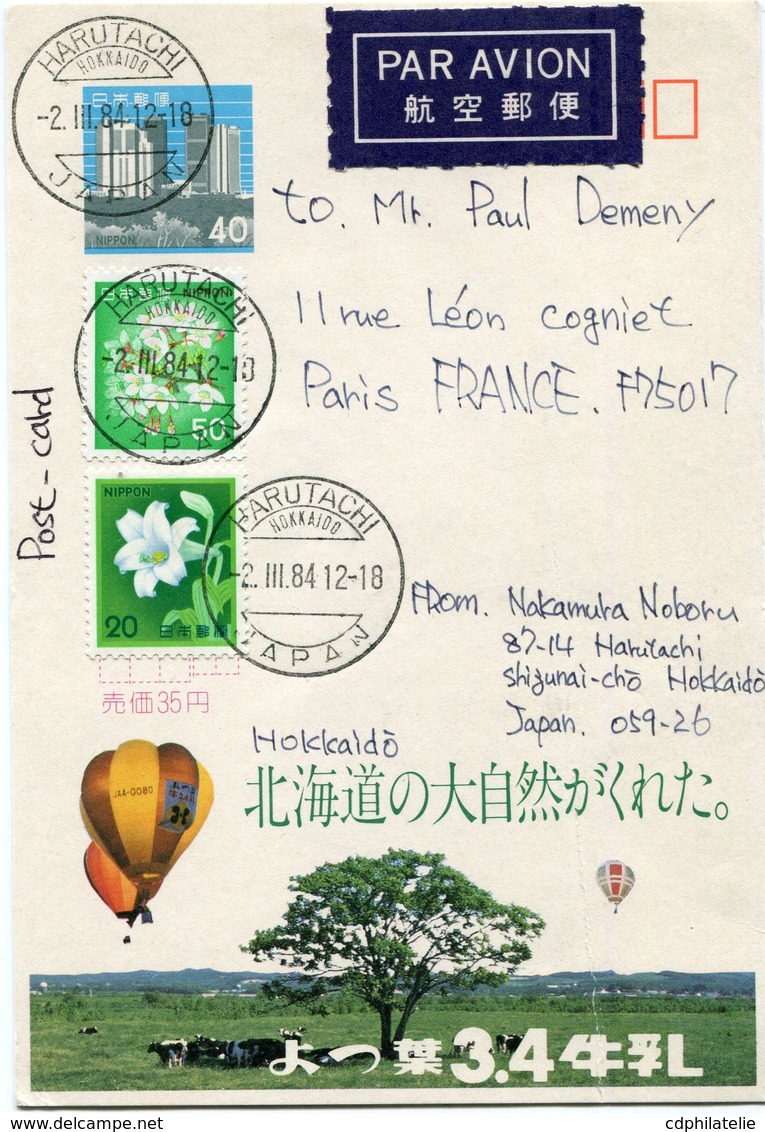 HARUTACHI
HOKKAIDO
-2.III.84.12-18
JAPAN
日本郵便
NIPPON
40
PAR AVION
航空郵便
to. Mr. Paul Demeny
11 rue Léon cogniet
Paris FRANCE. F75017
HARUTACHI
HOKKAIDO
-2.III.84.12-18
JAPAN
日本郵便 NIPPON
50
Post-card
NIPPON
20 日本郵便
HARUTACHI
HOKKAIDO
-2.III.84.12-18
JAPAN
売価35円
FROM. Nakamura Noboru
87-14 Harutachi
Shizunai-chō Hokkaidō
Japan. 059-26
Hokkaidō
北海道の大自然がくれた。
JAA-0080
よつ葉
よつ葉3.4牛乳
cdphilatelie